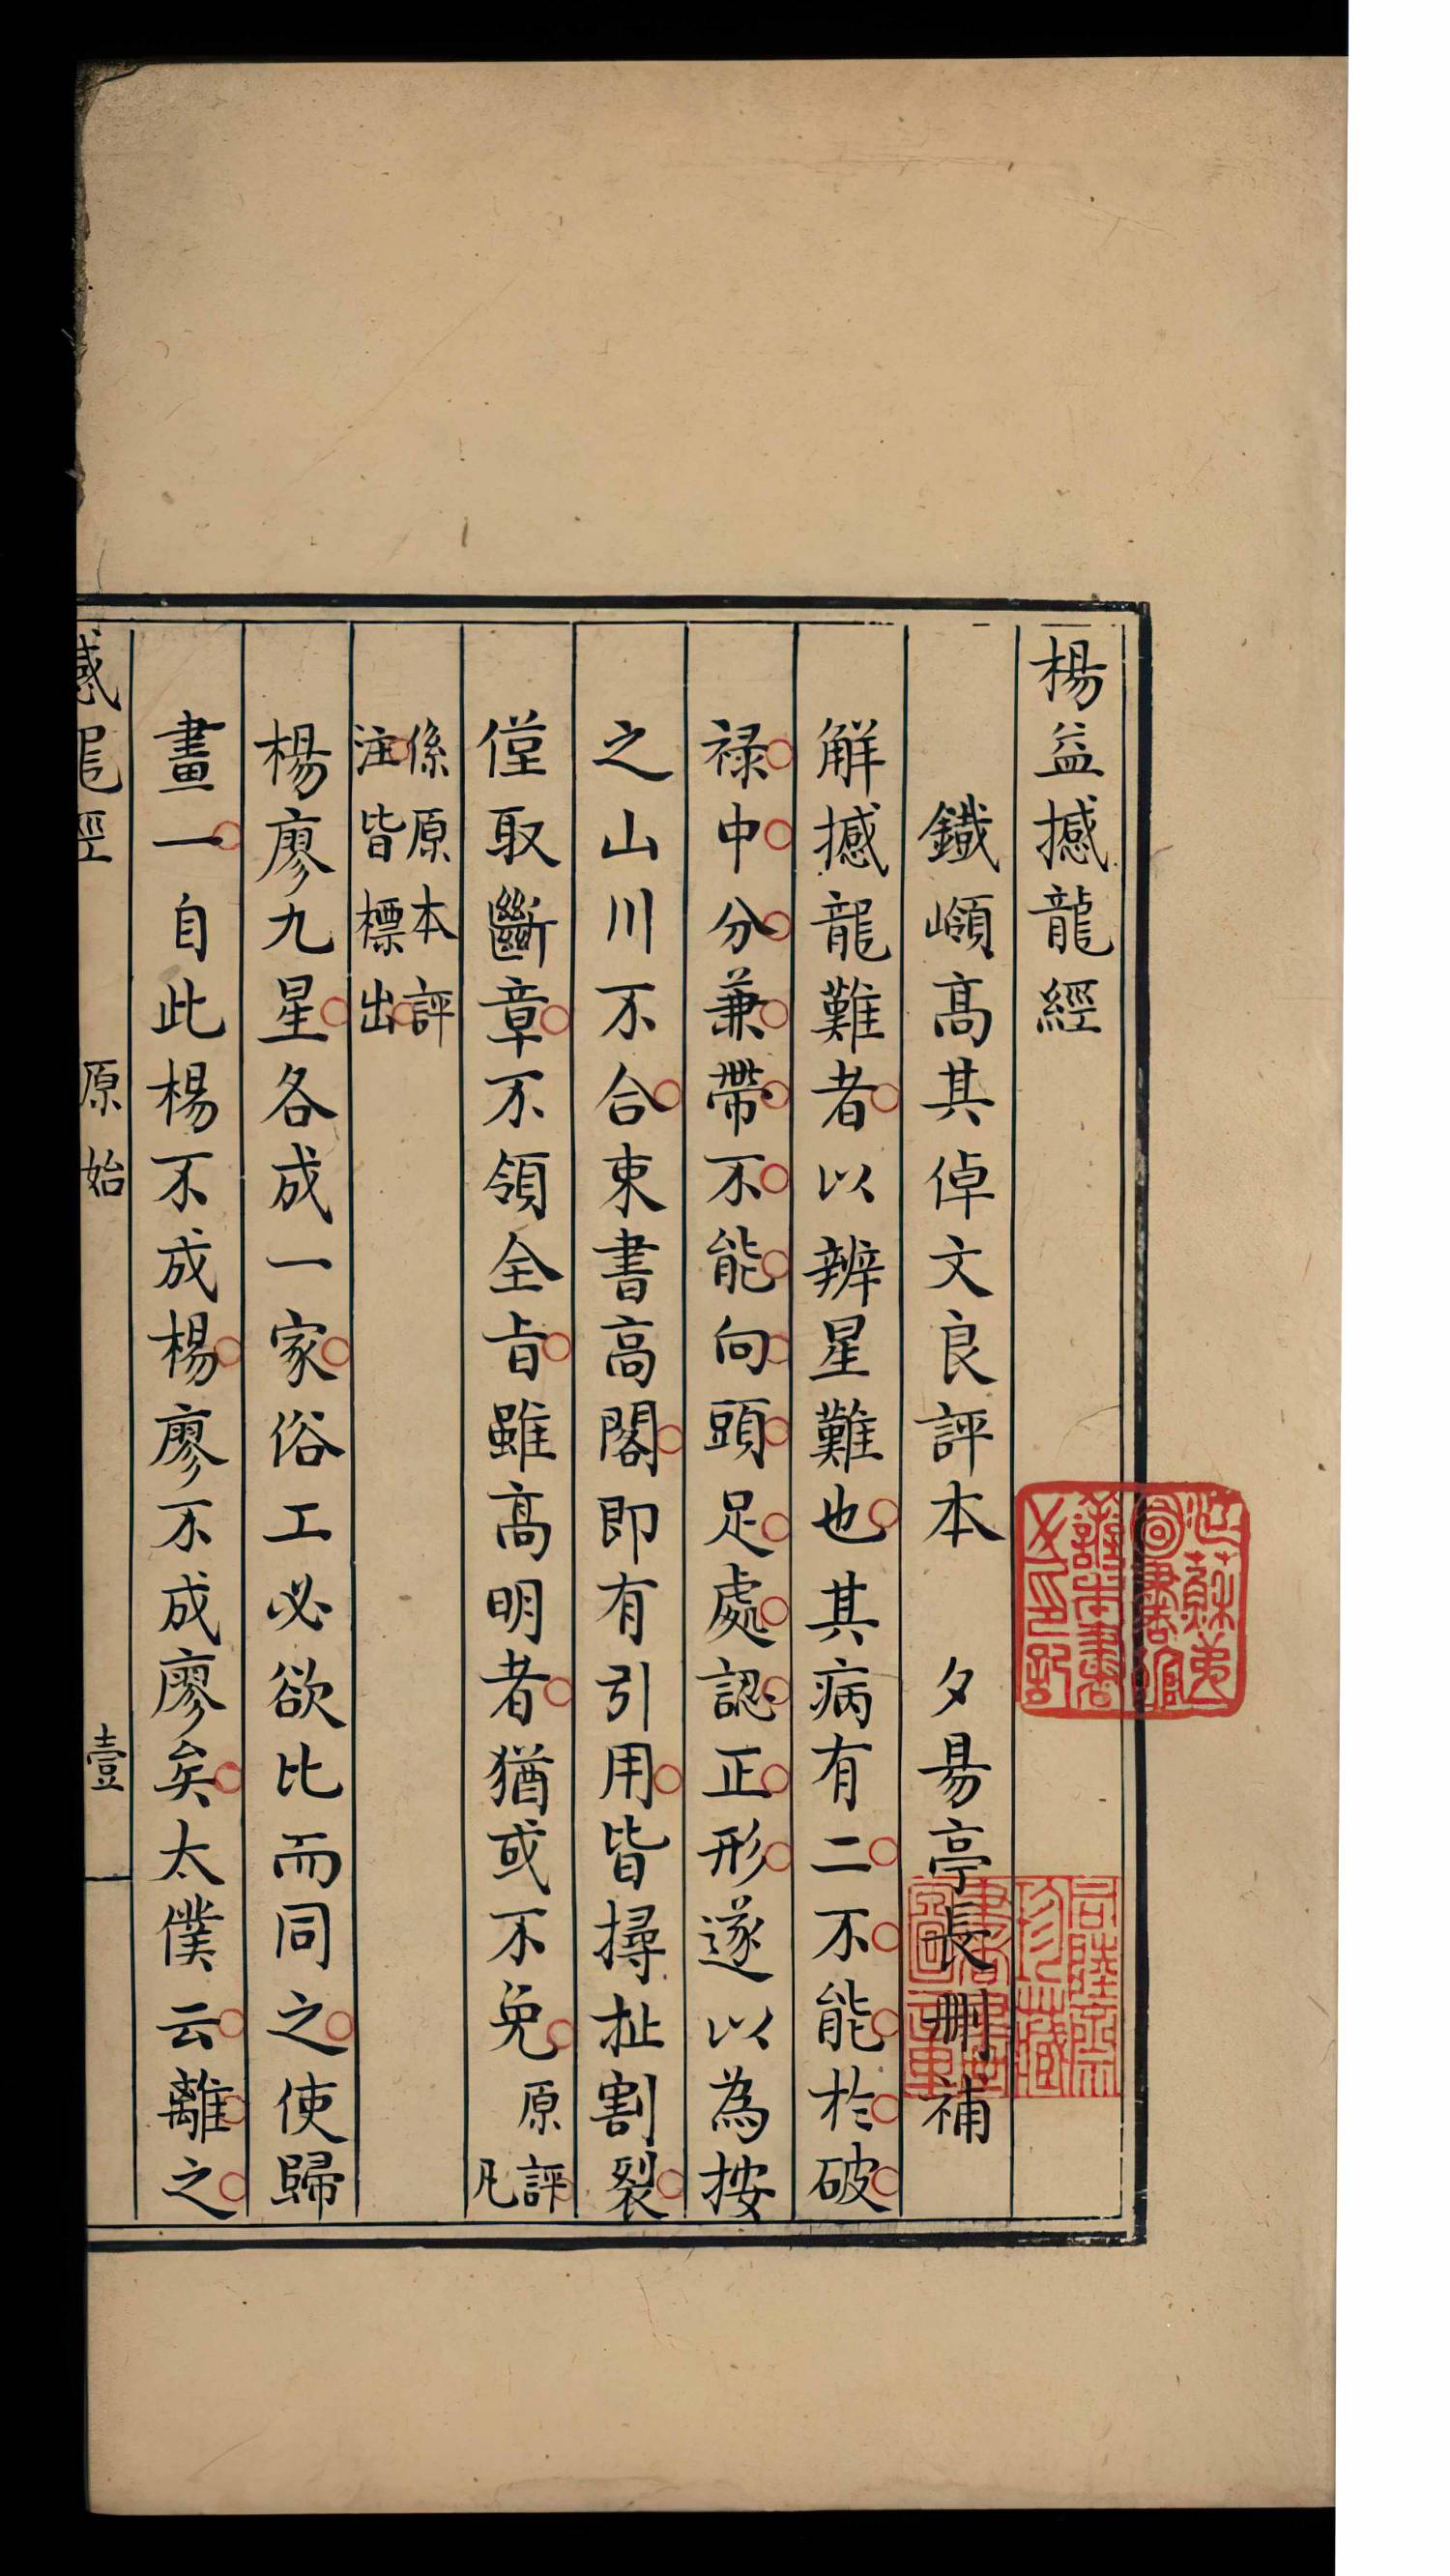 楊益撼龍經
鐵嶺髙其倬文良評本　夕昜亭長刪補
解撼龍難者以辨星難也其病有二不能於破
禄中分兼帶不能向頭足處認正形遂以為按
之山川不合束書高閣即有引用皆撏扯割裂
僅取斷章不領全旨雖髙明者猶或不免原評凡
係原本評
注皆標出
楊廖九星各成一家俗工必欲比而同之使歸
畫一自此楊不成楊廖不成廖矣太僕云離之
撼龍經　原始　壹
江蘇第
圖書館
善本書
之印記